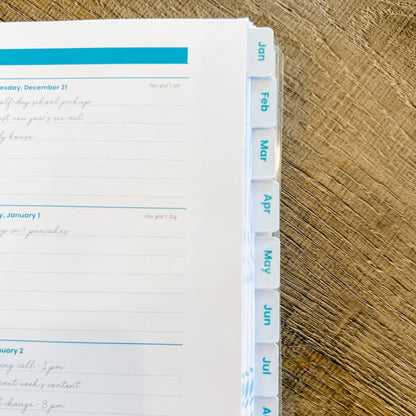 esday, December 31
New Year's Eve
alf-day school pickup
ost new year's eve reel
dy house
y, January 1
New Year's Day
ep in + pancakes
nuary 2
ing call - 1 pm
next week's content
l change - 3 pm
Jan
Feb
Mar
Apr
May
Jun
Jul
A